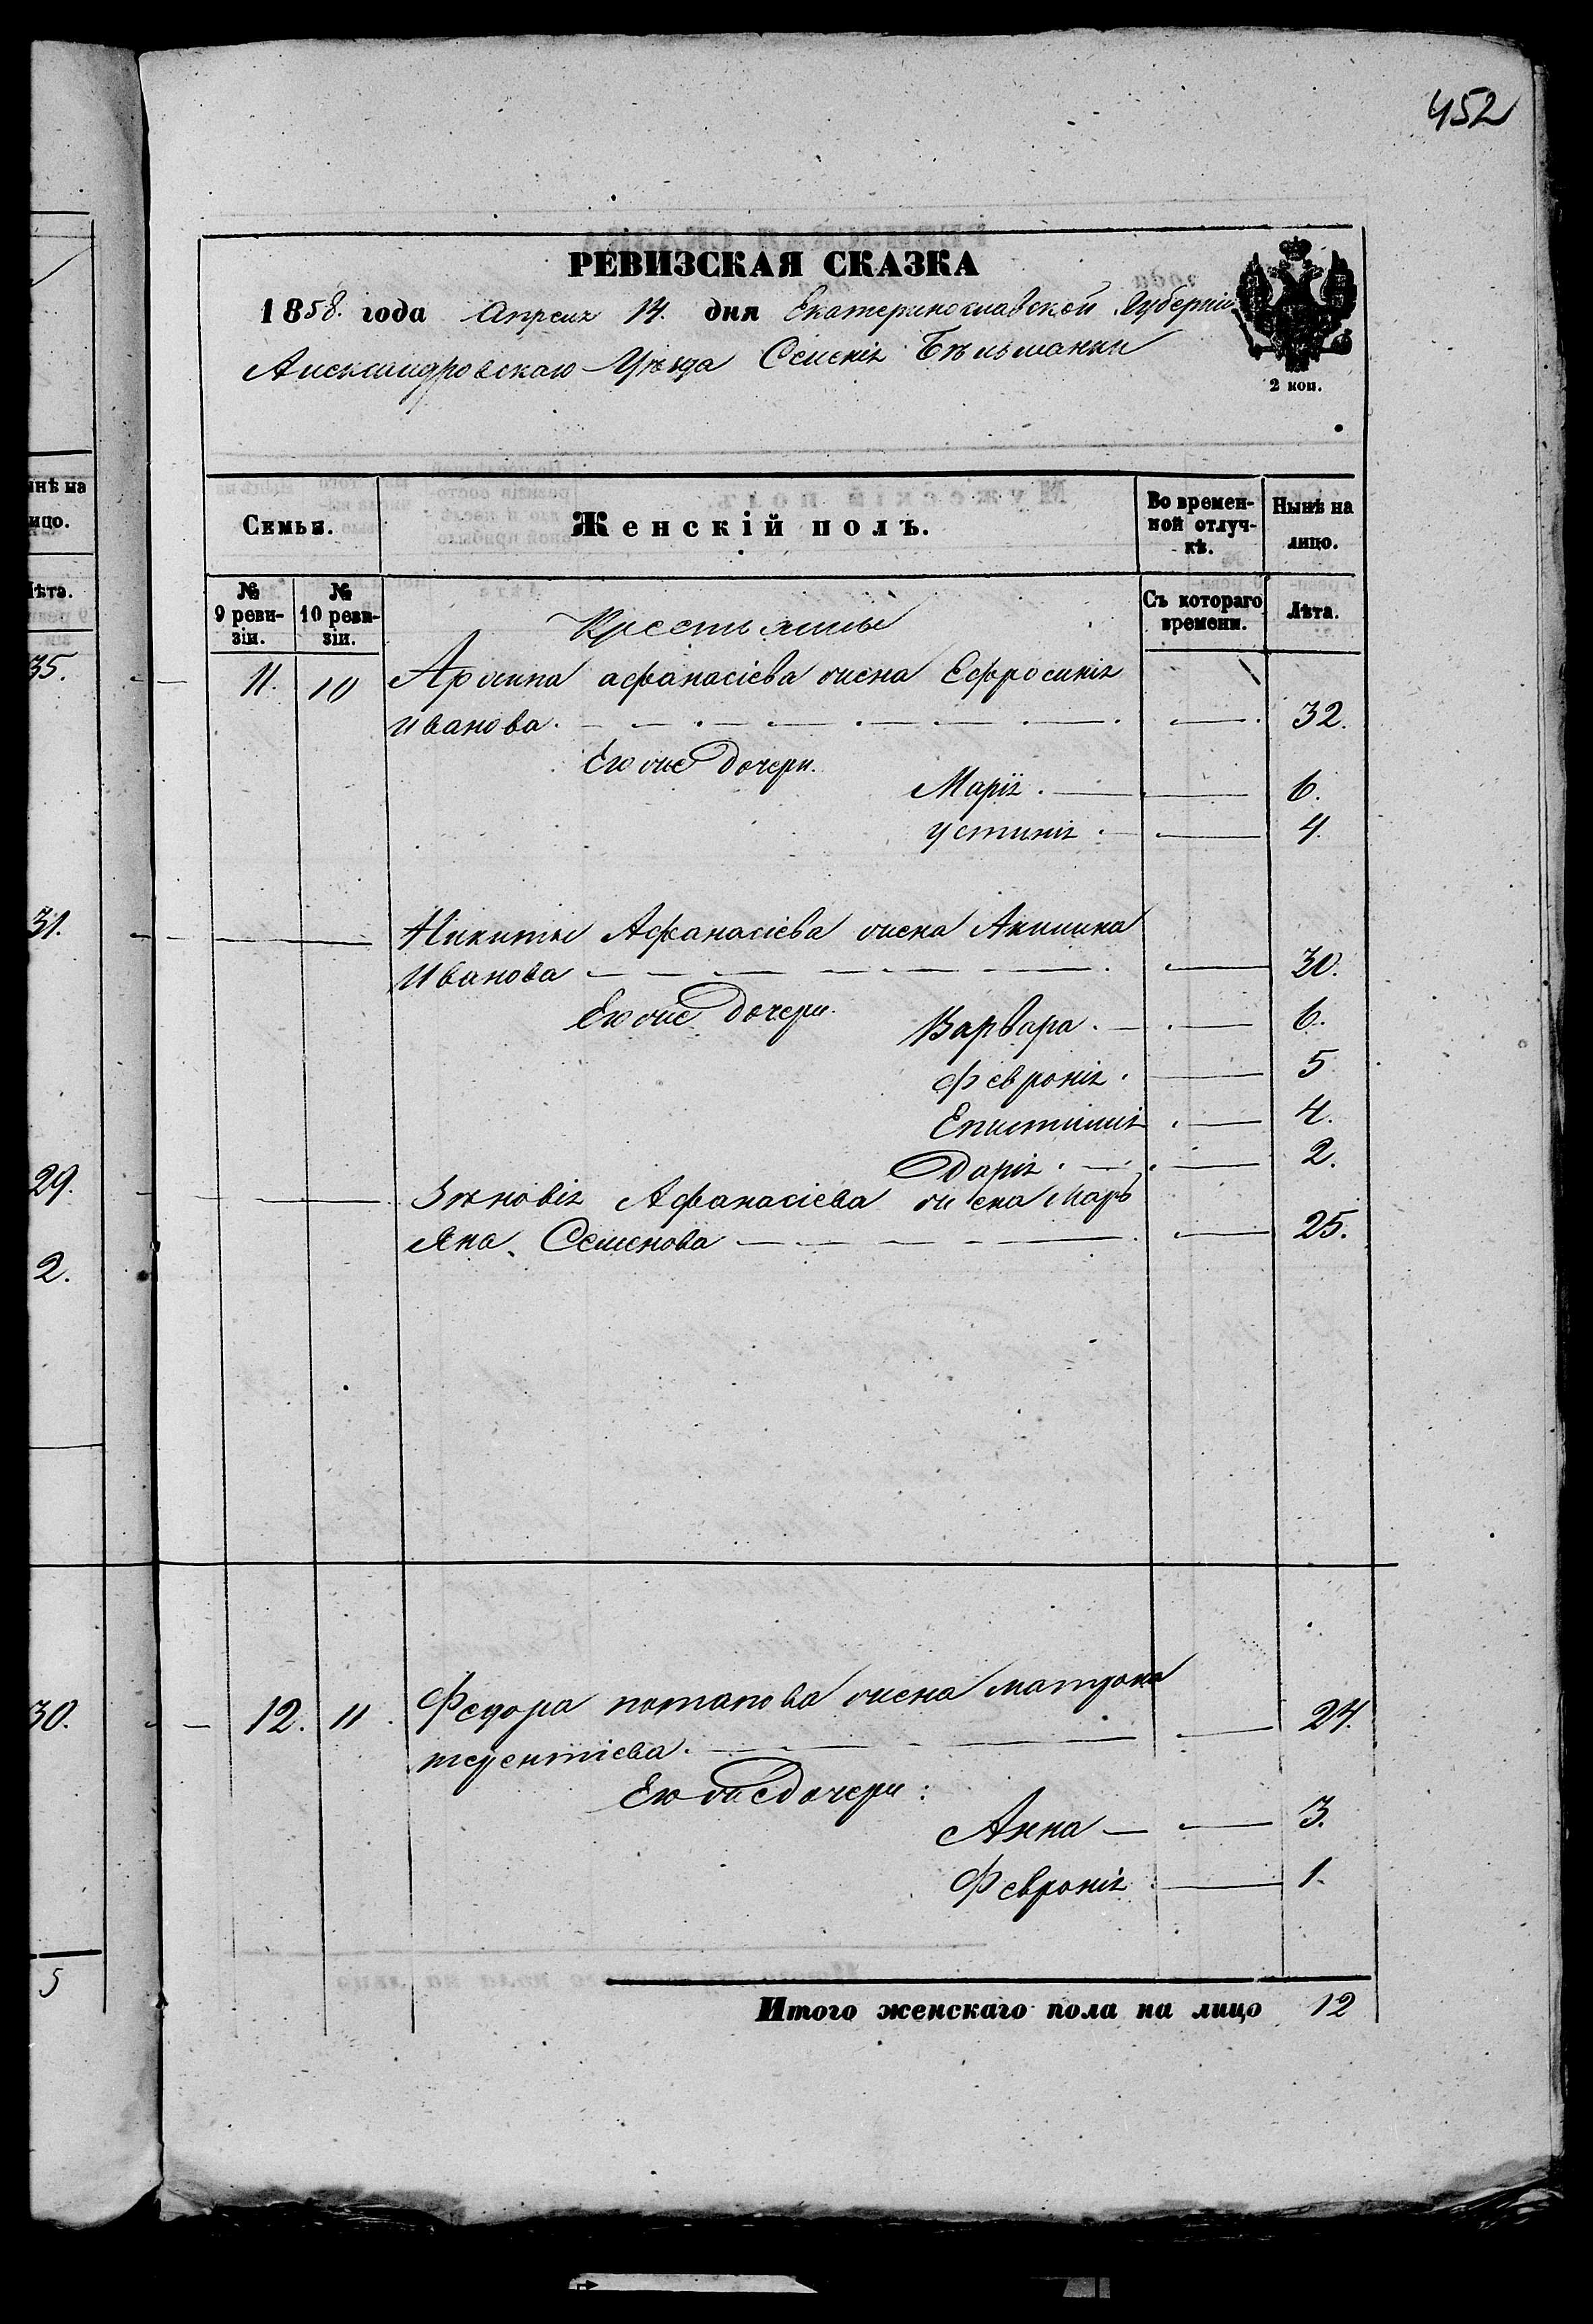 452
РЕВИЗСКАЯ СКАЗКА
1858. года Апреля 14. дня Екатеринославской Губерніи
Александровскаго Уѣзда Селенія Бѣльманки
2 коп.
Семьи.
Женскій полъ.
Во времен-
ной отлуч-
кѣ.
Нынѣ на
лицо.
№
9 реви-
зіи.
№
10 реви-
зіи.
Съ котораго
времени.
Лѣта.
Крестьянны
11. 10 Архипа афанасіева жена Ефросинія
иванова. 32.
Ею же Дочери.
Марія. 6.
устинія. 4.
Никиты Афанасіева жена Акилина
Иванова 30.
Ею же Дочери. Варвара. 6.
Февронія. 5
Епистимія 4.
Дарія. 2.
Зѣновія Афанасіева жена Марь
яна Семенова 25.
12. 11. Федора потапова жена матрона
терентіева. 24.
Ею же Дочери:
Анна 3.
Февронія 1.
Итого женскаго пола на лицо 12
ынѣ на
ицо.
Лѣта.
35.
31.
29.
2.
30.
5